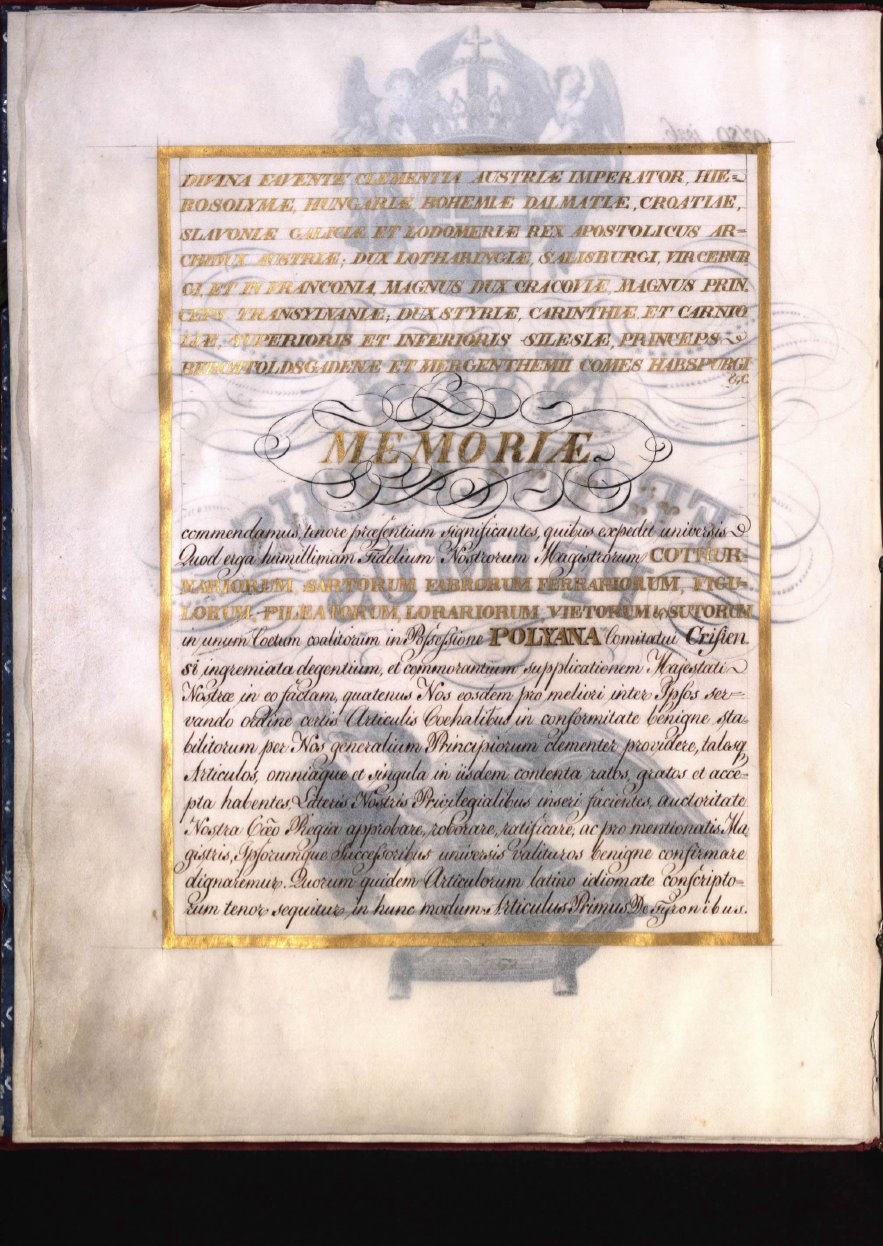 DIVINA FAVENTE CLEMENTIA AUSTRIÆ IMPERATOR, HIE=
ROSOLYMÆ, HUNGARIÆ BOHEMIÆ DALMATIÆ, CROATIAE,
SLAVONIÆ GALICIÆ ET LODOMERIÆ REX APOSTOLICUS AR=
CHIDUX AUSTRIÆ; DUX LOTHARINGIÆ, SALISBURGI, VIRCEBUR
GI, ET IN FRANCONIA, MAGNUS DUX CRACOVIÆ, MAGNUS PRIN,
CEPS TRANSYLVANIÆ; DUX STYRIÆ, CARINTHIÆ, ET CARNIO
LIÆ, SUPERIORIS ET INFERIORIS SILESIÆ, PRINCEPS
BERCHTOLDSGADENÆ ET MERGENTHEMII COMES HABSPURGI
&c.
MEMORIÆ
commendamus, tenore præsentium significantes, quibus expedit universis
Quod erga humillimam Fidelium Nostrorum Magistrorum COTHUR-
NARIORUM, SARTORUM, FABRORUM FERRARIORUM, FIGU-
LORUM, PILEATORUM, LORARIORUM, VIETORUM & SUTORUM
in unum Coetum coalitorum in Poſseſsione POLYANA Comitatui Crisien
si ingremiata degentium, et commorantium supplicationem Majestati
Nostræ in eo factam, quatenus Nos eosdem pro meliori inter Ipſos ser=
vando ordine certis Articulis Coehalibus in conformitate benigne sta,
bilitorum per Nos generalium Principiorum clementer providere, talesq
Articulos, omniaque et singula in iisdem contenta ratos, gratos et acce-
pta habentes, Lateris Nostris Privilegialibus inseri facientes, auctoritate
Nostra Cæo Regia approbare, roborare, ratificare, ac pro mentionatis Ma
gistris, Ipſorumque Succeſsoribus universis valituros benigne confirmare
dignaremur. Quorum quidem Articulorum latino idiomate conſcripto=
rum tenor sequitur in hunc modum. Articulus Primus De Tyronibus.